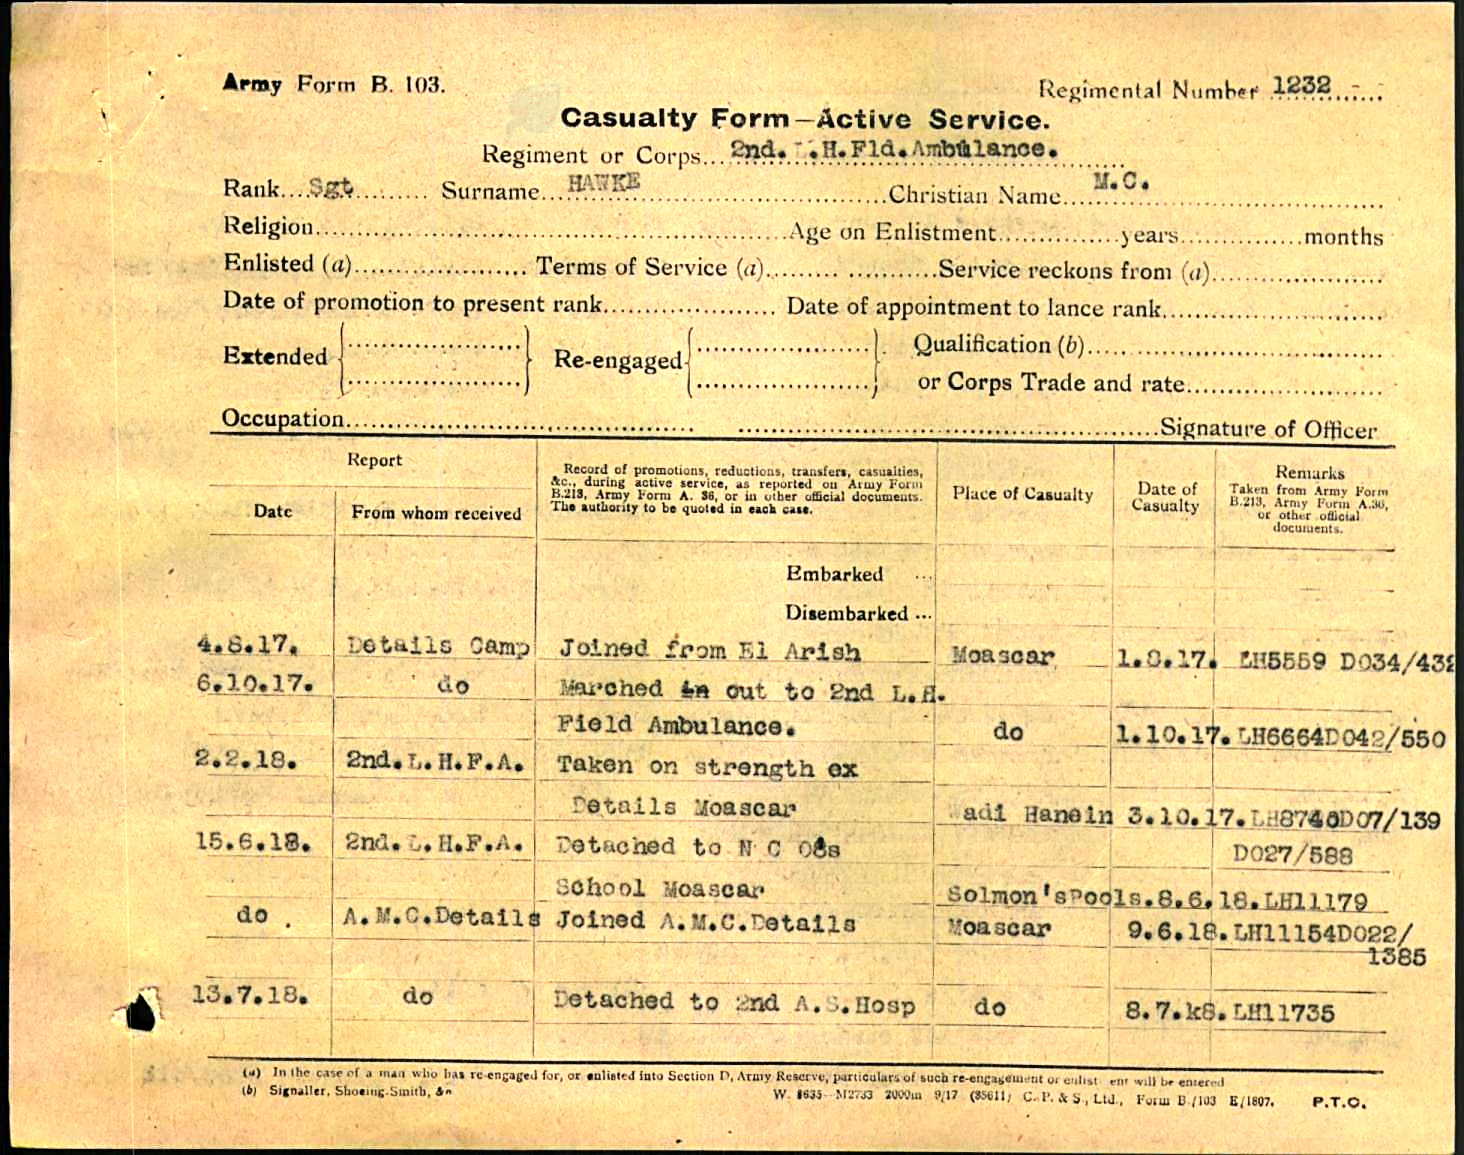 Army Form B. 103.
Regimental Number 1232
Casualty Form—Active Service.
Regiment or Corps 2nd. L.H.Fld.Ambulance.
Rank Sgt Surname HAWKE Christian Name M.C.
Religion Age on Enlistment years months
Enlisted (a) Terms of Service (a) Service reckons from (a)
Date of promotion to present rank Date of appointment to lance rank
Extended Re-engaged Qualification (b)
or Corps Trade and rate
Occupation Signature of Officer
Report
Date From whom received
Record of promotions, reductions, transfers, casualties,
&c., during active service, as reported on Army Form
B.213, Army Form A. 36, or in other official documents.
The authority to be quoted in each case.
Place of Casualty
Date of
Casualty
Remarks
Taken from Army Form
B.213, Army Form A.36,
or other official
documents.
Embarked ...
Disembarked ...
4.8.17. Details Camp Joined from El Arish Moascar 1.8.17. LH5559 DO34/432
6.10.17. do Marched in out to 2nd L.H.
Field Ambulance. do 1.10.17. LH6664DO42/550
2.2.18. 2nd.L.H.F.A. Taken on strength ex
Details Moascar Wadi Hanein 3.10.17. LH8746DO7/139
15.6.18. 2nd.L.H.F.A. Detached to N C O's DO27/588
School Moascar Solmon's Pools. 8.6.18. LH11179
do . A.M.C.Details Joined A.M.C.Details Moascar 9.6.18. LH11154DO22/
1385
13.7.18. do Detached to 2nd A.S.Hosp do 8.7.k8. LH11735
(a) In the case of a man who has re-engaged for, or enlisted into Section D, Army Reserve, particulars of such re-engagement or enlistment will be entered
(b) Signaller, Shoeing-Smith, &c
W. 8635—M2733 2000m 9/17 (35611) C. P. & S., Ltd., Form B./103 E/1807. P.T.O.